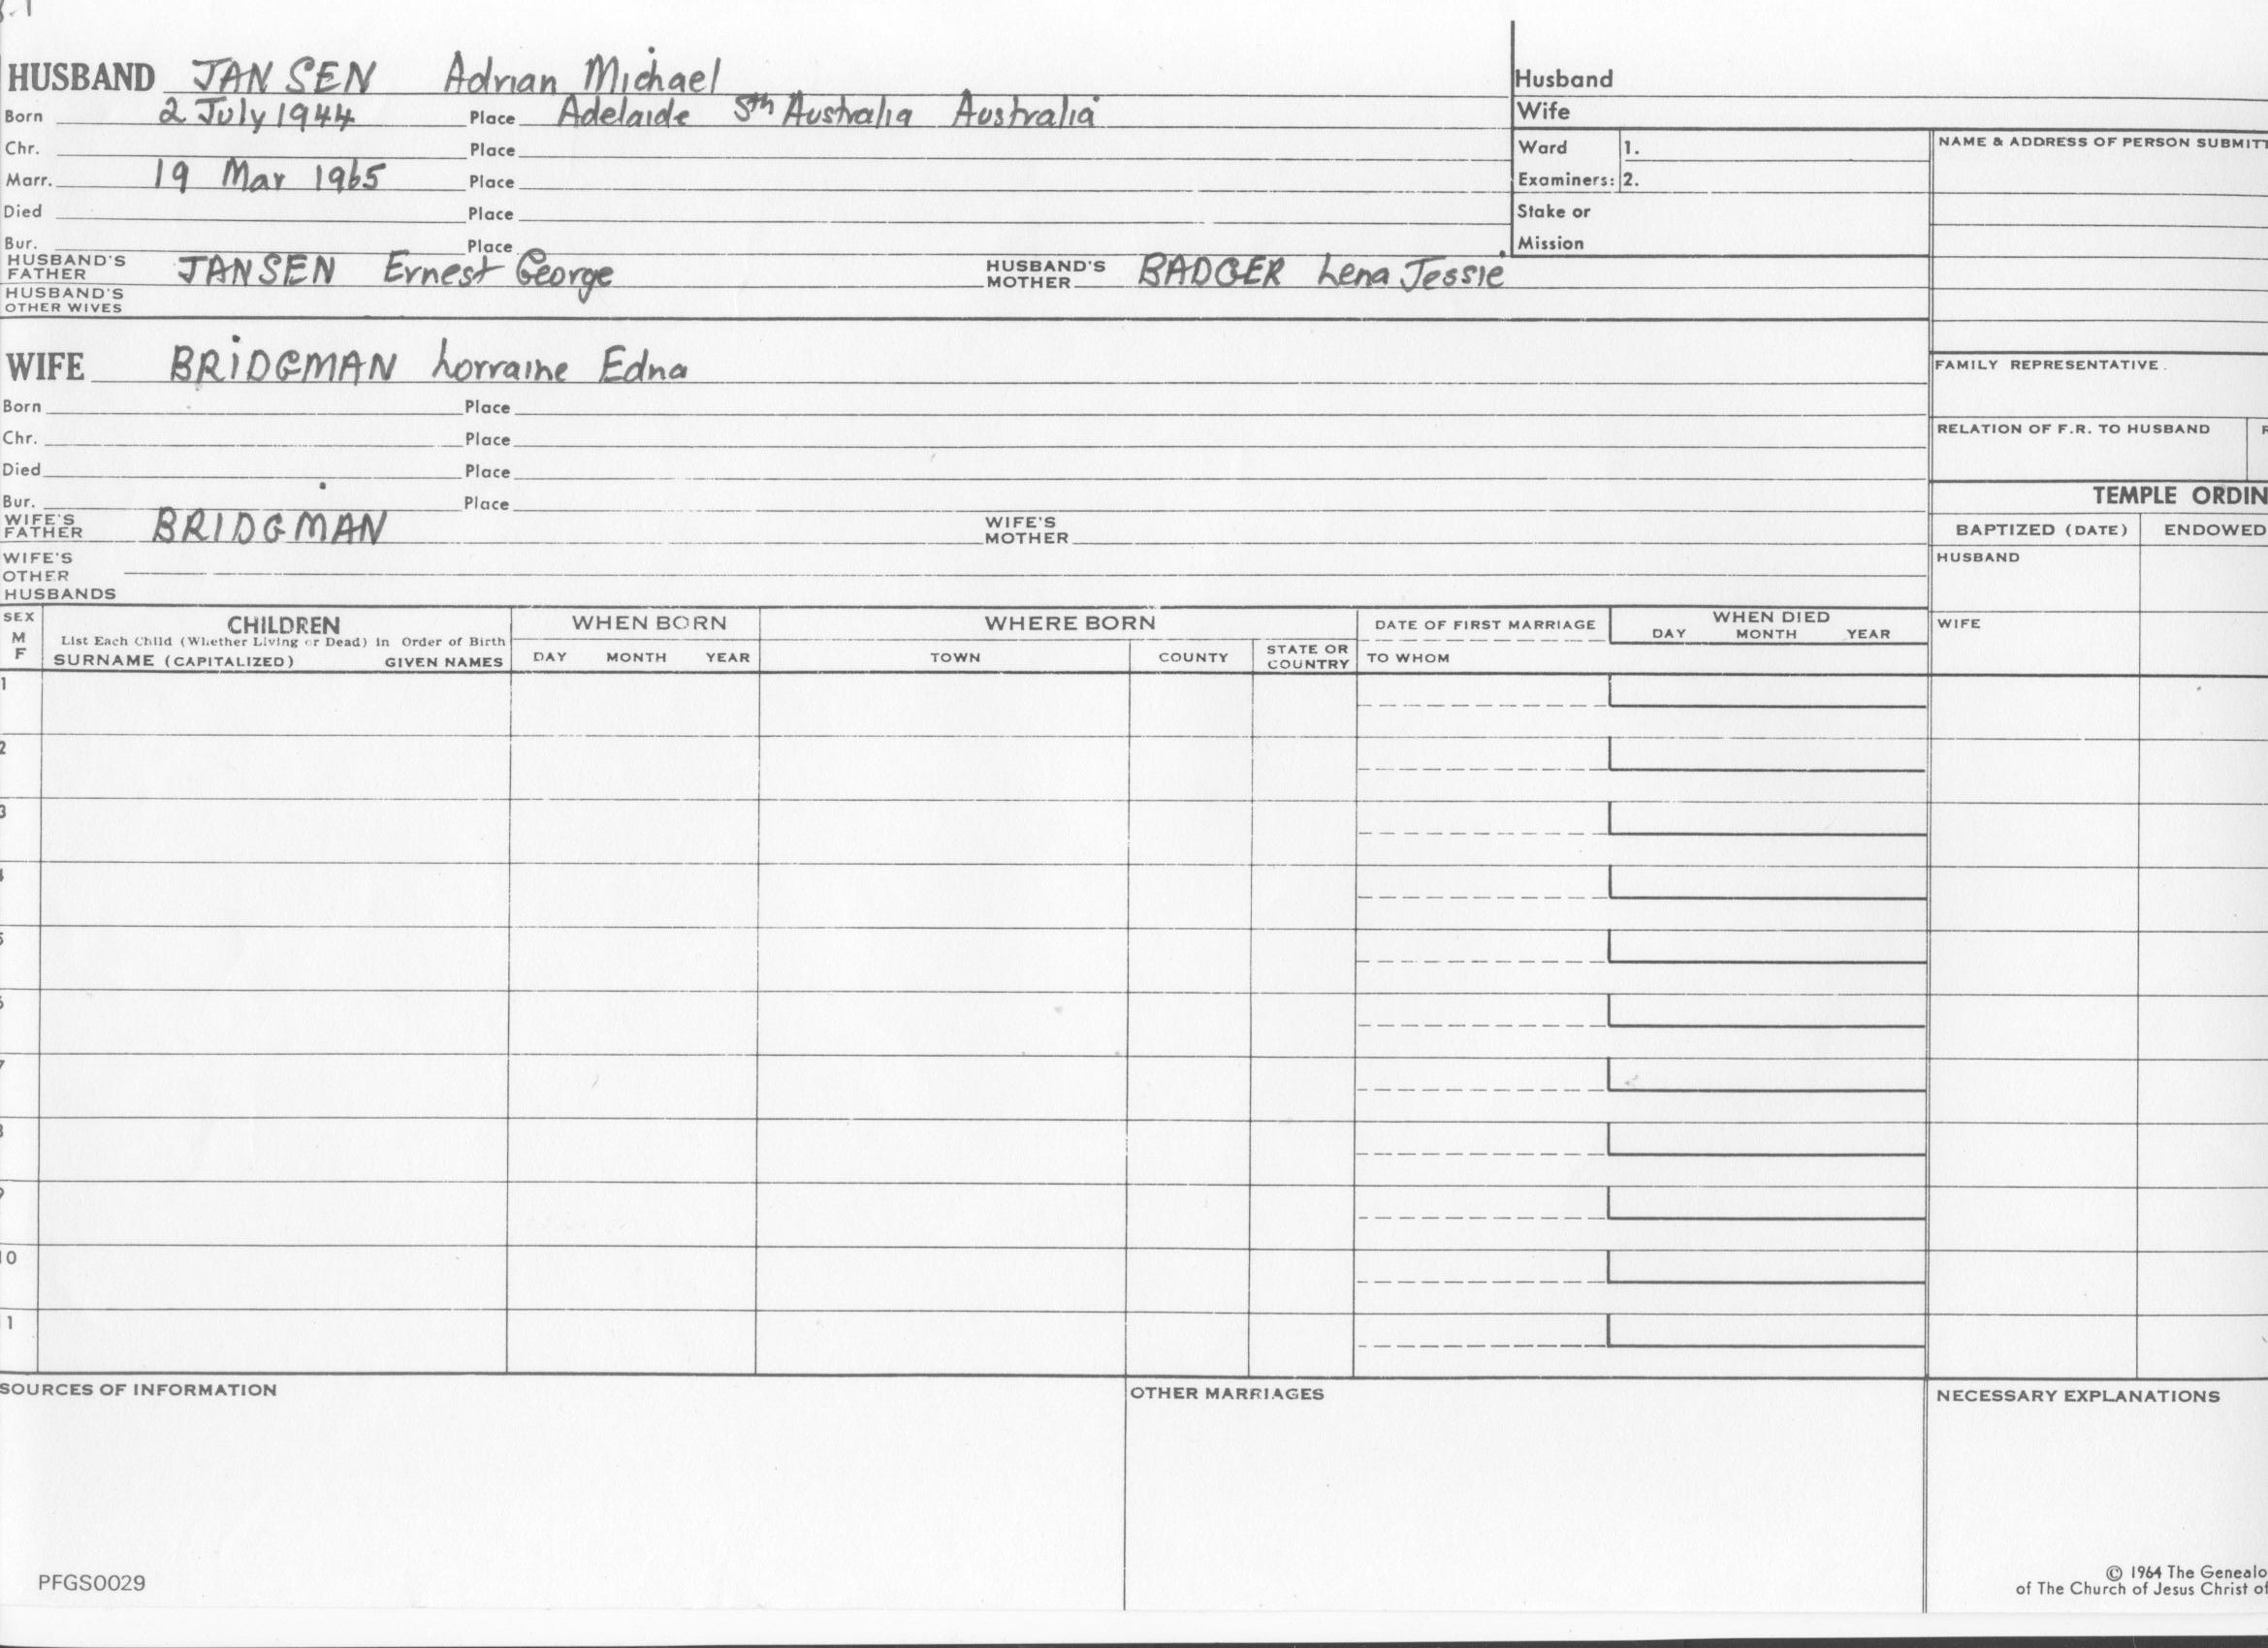 HUSBAND JANSEN Adrian Michael
Born 2 July 1944 Place Adelaide Sth Australia Australia
Chr. Place
Marr. 19 Mar 1965 Place
Died Place
Bur. Place
HUSBAND'S FATHER JANSEN Ernest George HUSBAND'S MOTHER BADGER Lena Jessie
HUSBAND'S OTHER WIVES
Husband
Wife
Ward 1.
Examiners: 2.
Stake or
Mission
NAME & ADDRESS OF PERSON SUBMITT
WIFE BRIDGMAN Lorraine Edna
Born Place
Chr. Place
Died Place
Bur. Place
WIFE'S FATHER BRIDGMAN WIFE'S MOTHER
WIFE'S OTHER HUSBANDS
FAMILY REPRESENTATIVE
RELATION OF F.R. TO HUSBAND
TEMPLE ORDIN
BAPTIZED (DATE) ENDOWED
HUSBAND
WIFE
SEX M F
CHILDREN
List Each Child (Whether Living or Dead) in Order of Birth
SURNAME (CAPITALIZED) GIVEN NAMES
WHEN BORN
DAY MONTH YEAR
WHERE BORN
TOWN COUNTY STATE OR COUNTRY
DATE OF FIRST MARRIAGE
TO WHOM
WHEN DIED
DAY MONTH YEAR
1
2
3
4
5
6
7
8
9
10
11
SOURCES OF INFORMATION
OTHER MARRIAGES
NECESSARY EXPLANATIONS
PFGS0029
© 1964 The Genealo
of The Church of Jesus Christ of